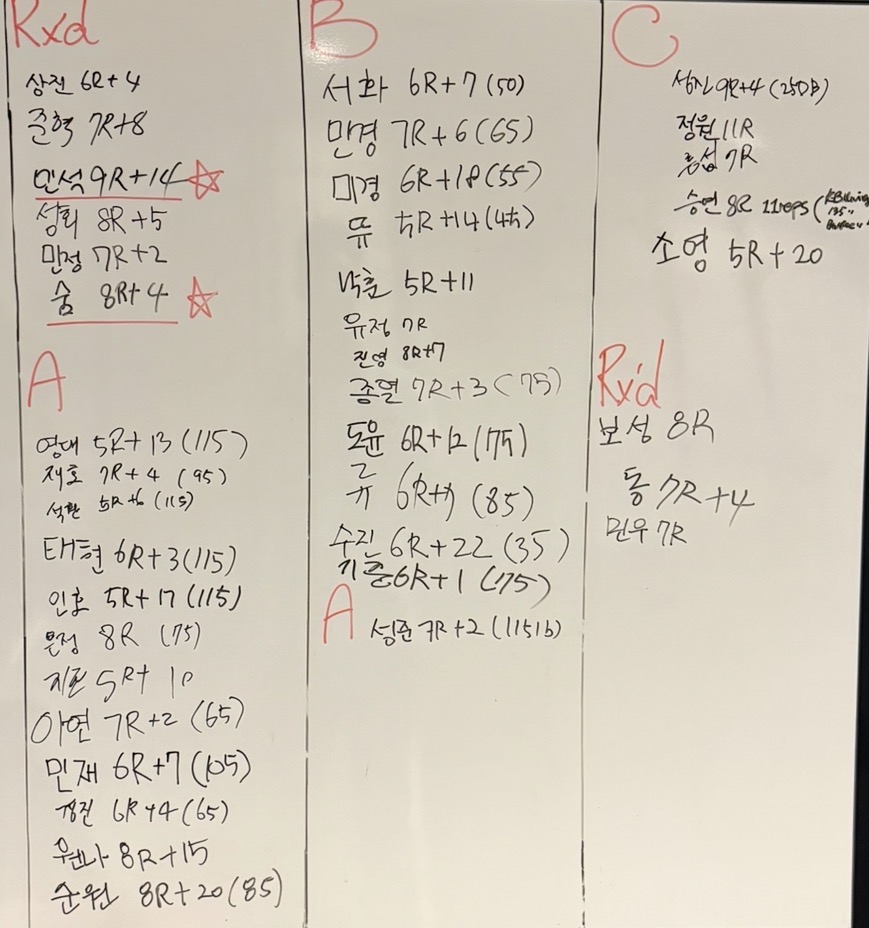 Rxd
상진 6R+4
준혁 7R+8
민석 9R+14
성회 8R+5
만정 7R+2
숨 8R+4
A
영대 5R+13 (115)
재호 7R+4 (95)
석환 5R+6 (115)
태현 6R+3 (115)
인호 5R+17 (115)
은정 8R (75)
5R+10
아연 7R+2 (65)
민재 6R+7 (105)
경진 6R+4 (65)
원나 8R+15
순원 8R+20 (85)
B
서화 6R+7 (50)
만경 7R+6 (65)
미경 6R+18 (55)
뜌 5R+14 (45)
5R+11
유정 7R
진영 8R+7
종열 7R+3 (75)
도윤 6R+12 (75)
류 (85)
수진 6R+22 (35)
기준 6R+1 (75)
A
성준 7R+2 (115lb)
C
9R+4
정원 11R
7R
승연 8R 11reps
소영 5R+20
Rx'd
보성 8R
동 7R+4
민우 7R